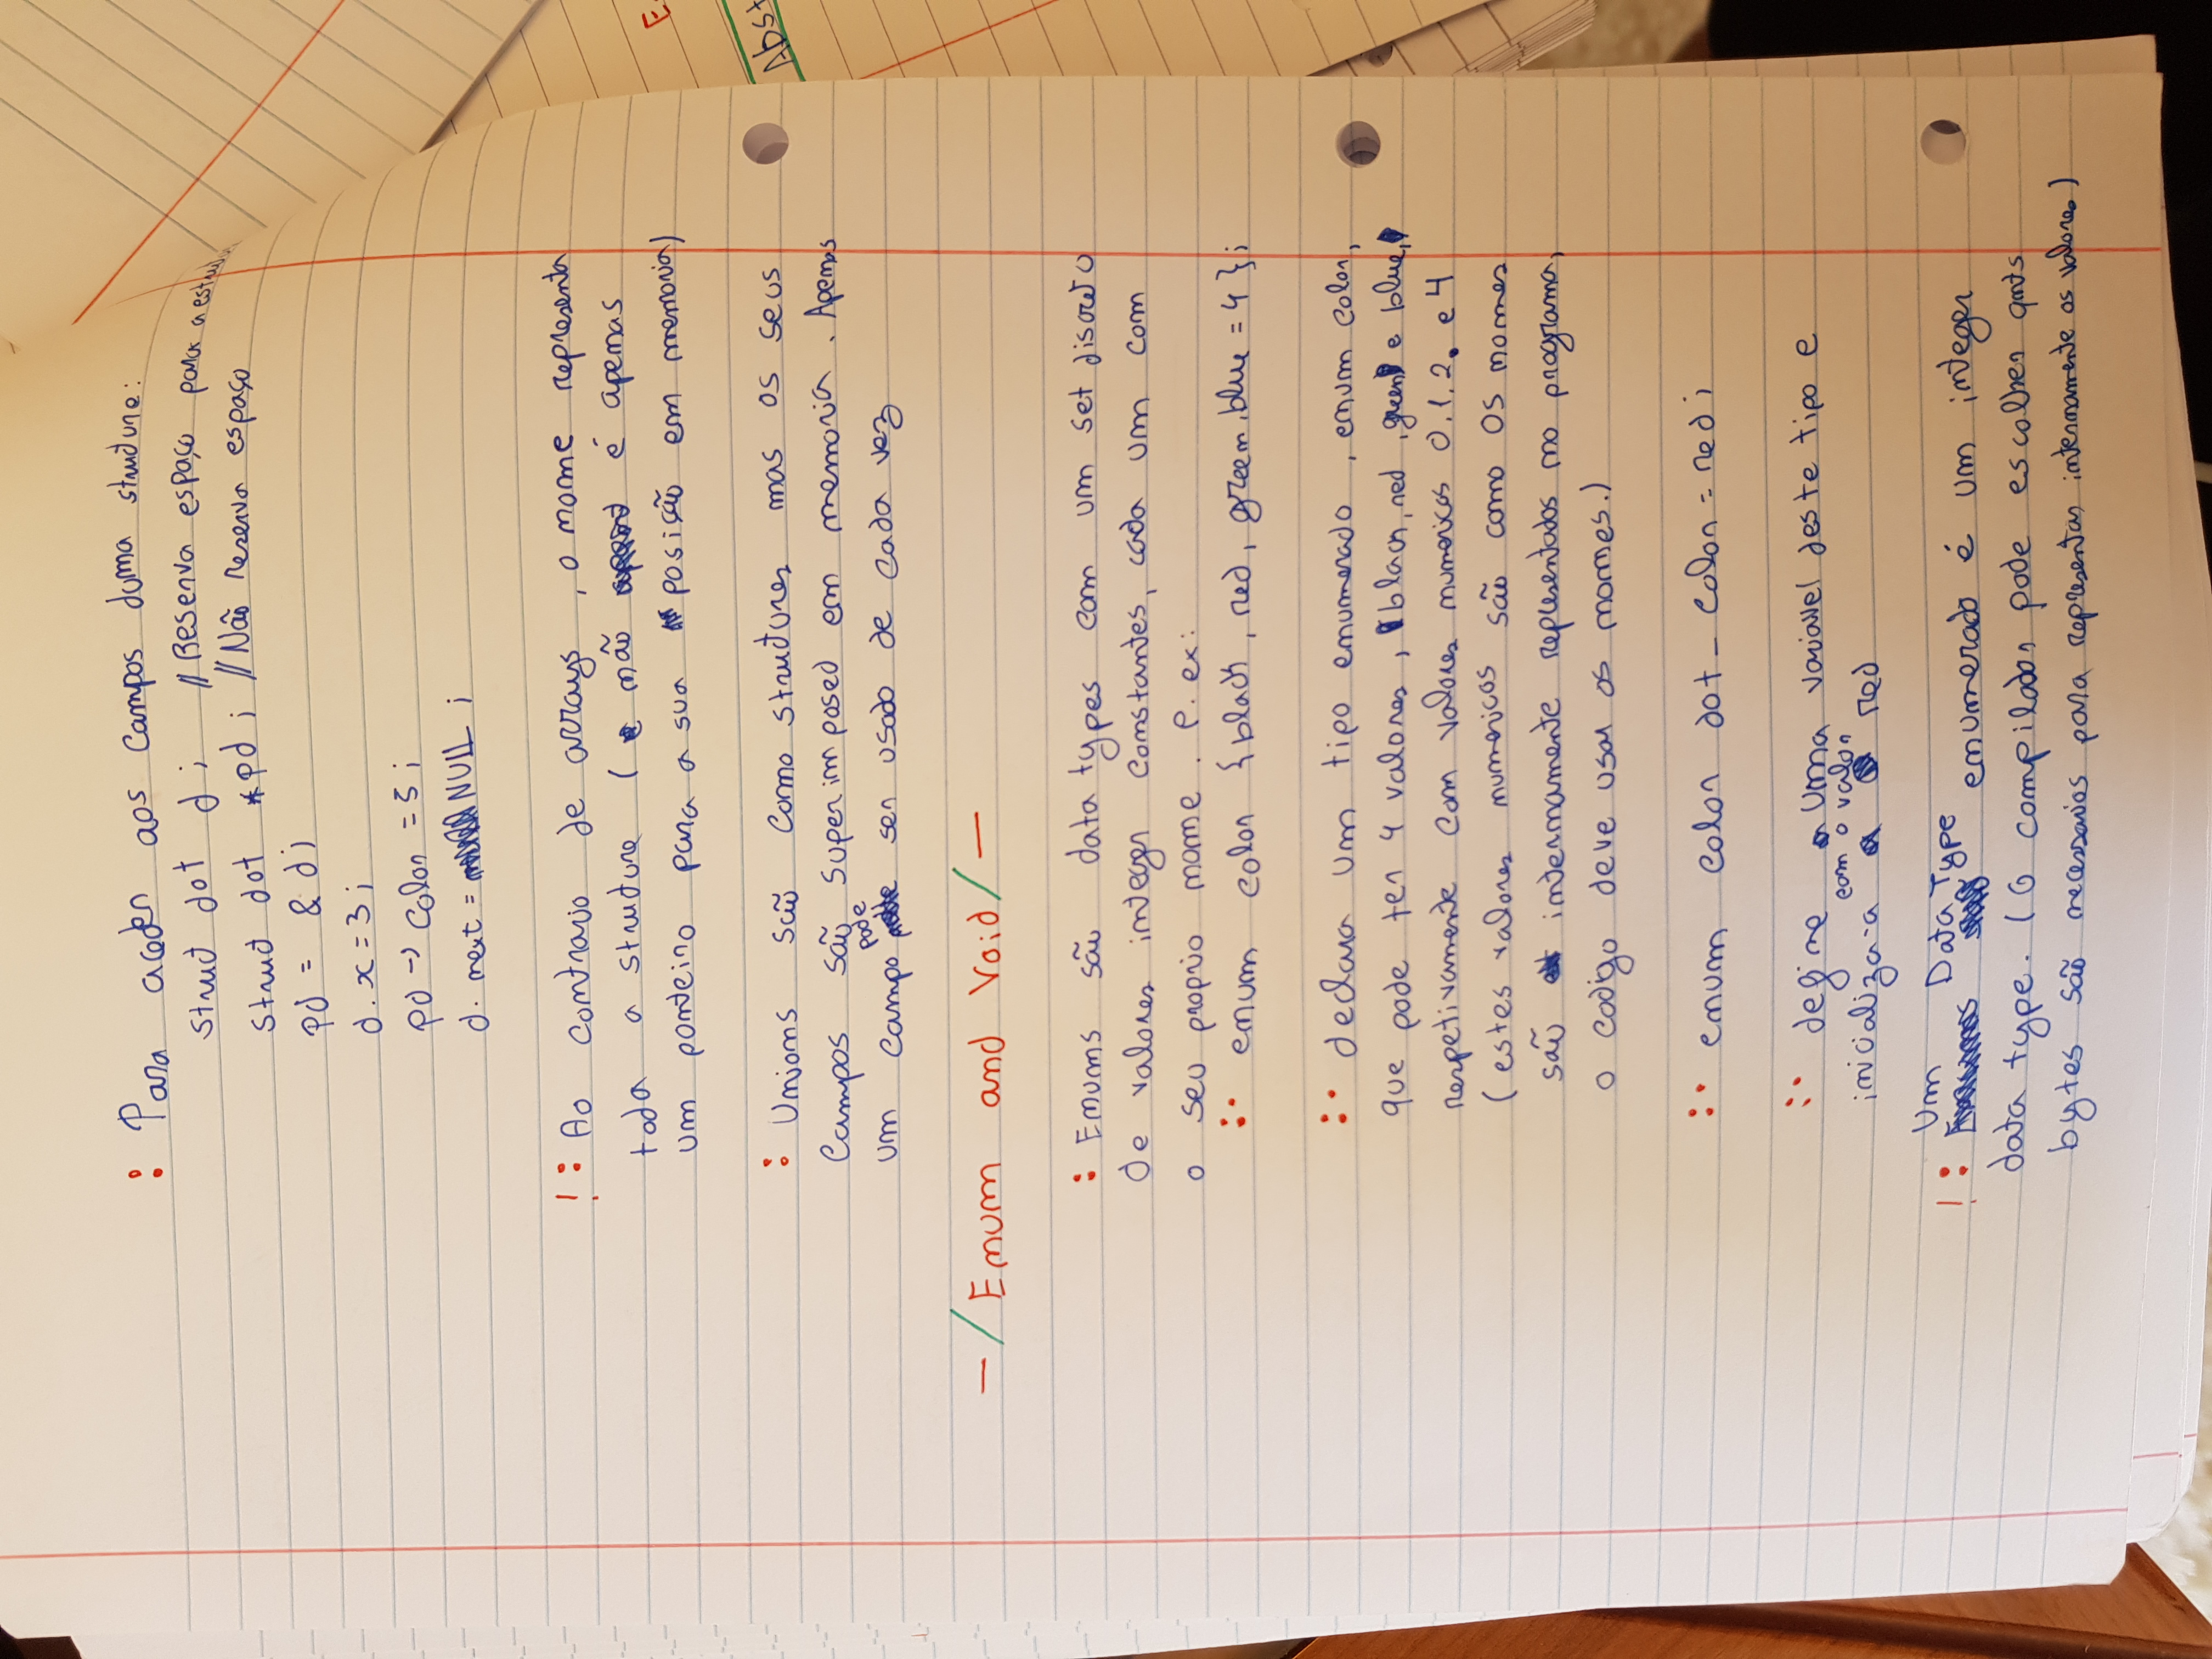 : Para aceder aos campos duma structure:
struct dot d; // Reserva espaço para a estru
struct dot *pd; // Não reserva espaço
pd = &d;
d.x = 3;
pd -> color = 5;
d.next = NULL;
!: Ao contrario de arrays, o nome representa
toda a structure (e não é apenas
um ponteiro para a sua posição em memoria)
: Unions são como structures mas os seus
campos são superimposed em memoria. Apenas
um campo pode ser usado de cada vez
-/Enum and Void/-
: Enums são data types com um set discreto
de valores integer constantes, cada um com
o seu proprio nome. P. ex:
:· enum color {black, red, green, blue = 4};
:· declara um tipo enumerado, enum color,
que pode ter 4 valores, black, red, green e blue,
respetivamente com valores numericos 0,1,2, e 4
(estes valores numericos são como os nomes
são internamente representados no programa,
o codigo deve usar os nomes.)
:· enum color dot_color = red;
:· define uma variavel deste tipo e
inicializa-a com o valor red
!: Um Data Type enumerado é um integer
data type. (O compilador pode escolher qnts
bytes são necessarios para representar internamente os valores)
E
Abst